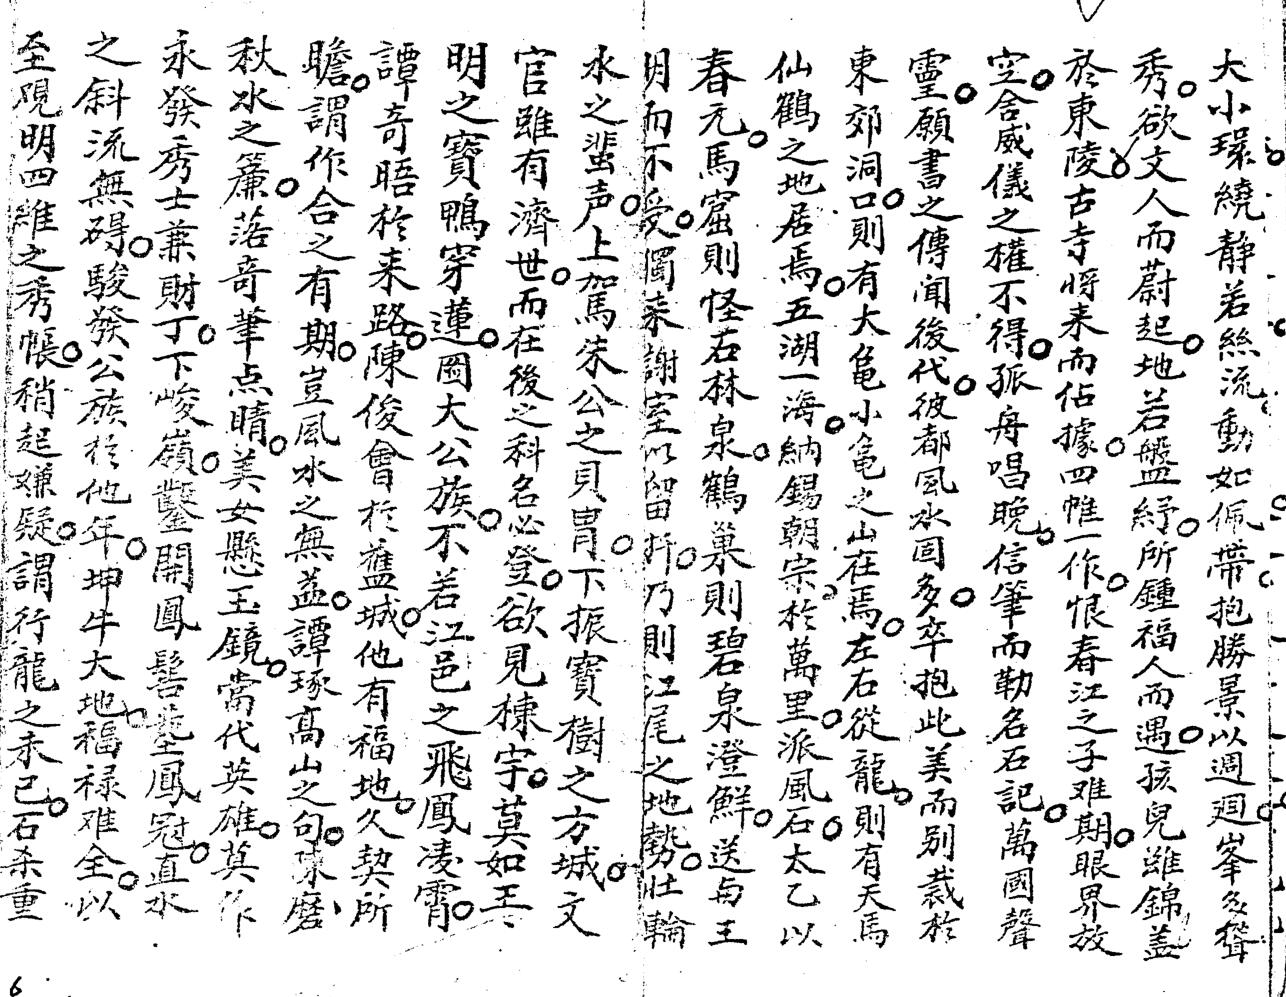 大小環繞静若絲流動如佩帶抱勝景以週廻峯多聳
秀欲文人而蔚起地若盤紆所鍾福人而遇孩兒雖錦盖
於東陵古寺将来而佔據四帷一作恨春江之子难期眼界放
空舍威儀之權不得孤舟唱晚信筆而勒名石記萬國聲
靈願書之傳聞後代彼都風水固多卒抱此美而别裁於
東郊洞口則有大龟小龟之山在焉左右從龍則有天馬
仙鶴之地居焉五湖一海納錫朝宗於萬里派風石太乙以
春元馬窟則怪石林泉鶴巢則碧泉澄鮮送与王
明而不受獨來謝室以留折乃則江尾之地勢壯輪
水之蜚声上駕朱公之貝胄下振寶樹之方城文
官雖有濟世而在後之科名必登欲見棟宇莫如王
明之寶鴨穿蓮固大公族不若江邑之飛鳳凌霄
譚奇晤於来路陳俊會於舊城他有福地久契所
瞻謂作合之有期豈風水之無益譚琢高山之句陳磨
秋水之簾落奇筆点睛美女懸玉鏡當代英雄莫作
永發秀士兼財丁下峻嶺鑿開鳳髻塋鳳冠直水
之斜流無碍駿發公族於他年坤牛大地福禄难全以
至硯明四維之秀帳稍起嫌疑謂行龍之未已石杀重
6